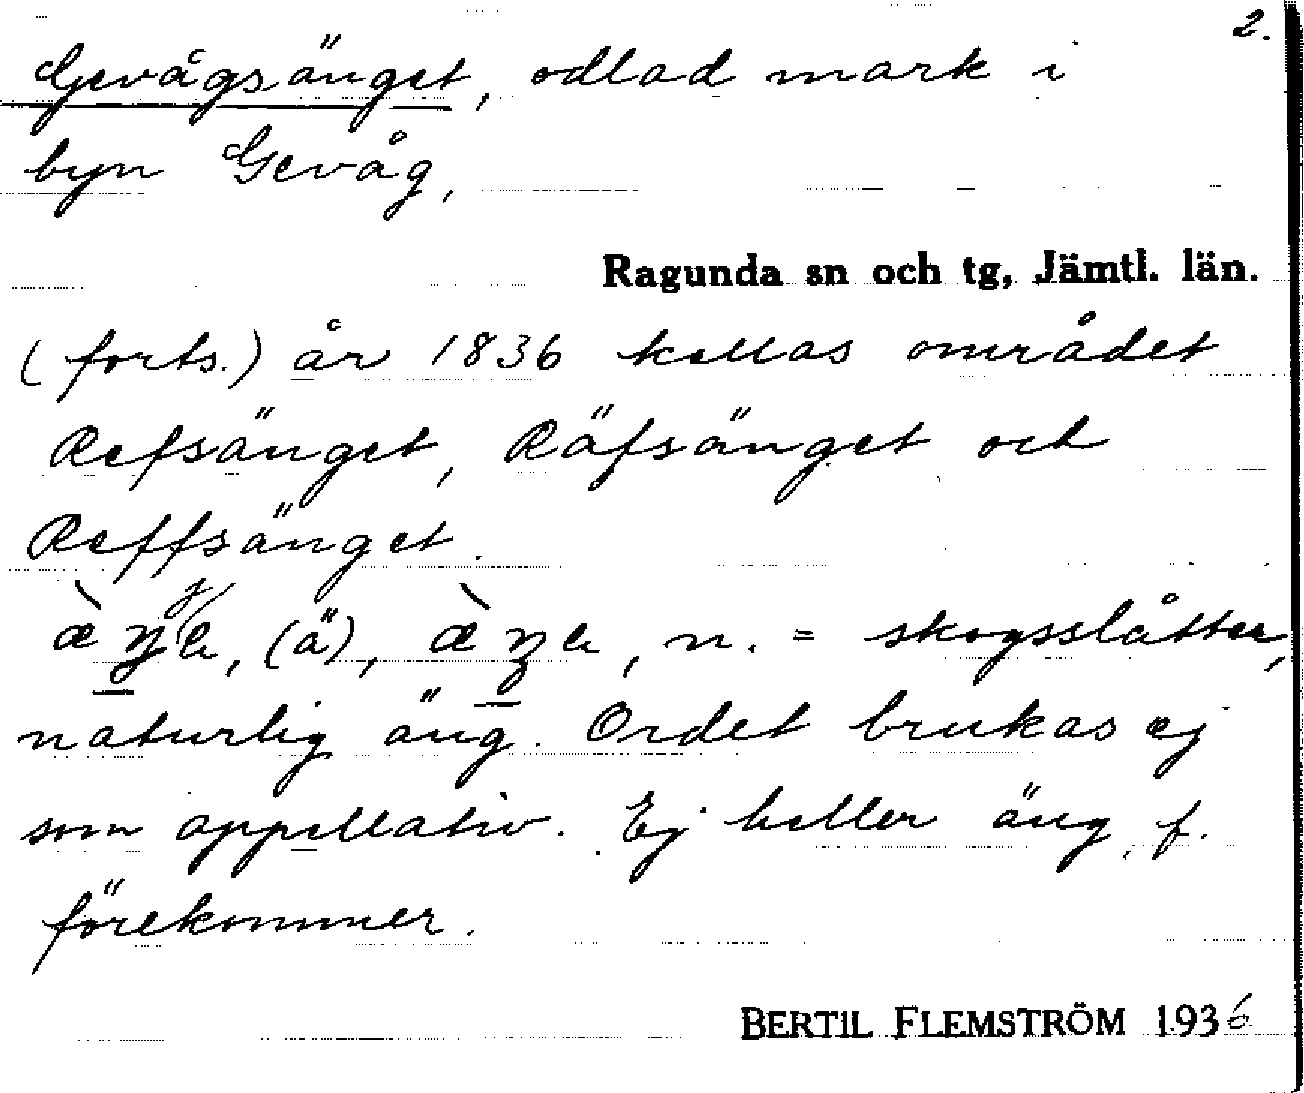 2.
Gevågsänget, odlad mark i
byn Gevåg,
Ragunda sn och tg, Jämtl. län.
(forts.) år 1836 kallas området
Refsänget, Räfsänget och
Reffsänget.
(ä), n. = skogsslåtter,
naturlig äng. Ordet brukas ej
som appellativ. Ej heller äng, f.
förekommer.
BERTIL FLEMSTRÖM 1936